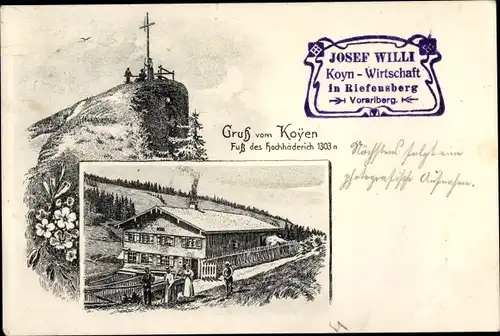 JOSEF WILLI
Koyn - Wirtschaft
in Riefensberg
Vorarlberg.
Gruß vom Koÿen
Fuß des Hochhäderich 1303 m
Nächstens folgt ein
photografische Aufnahme.